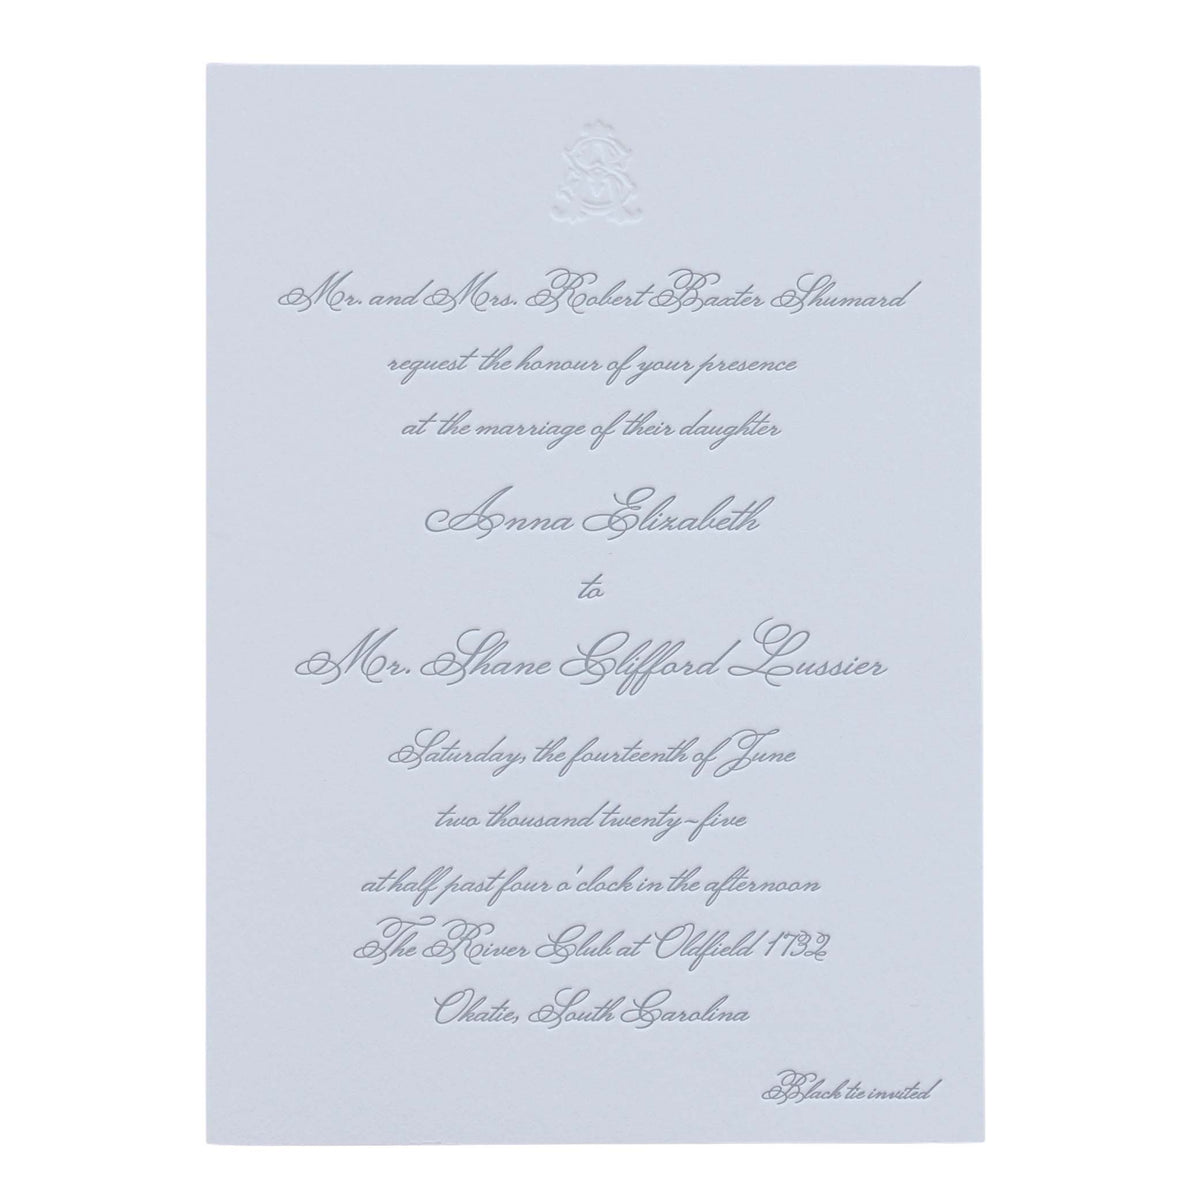 Mr. and Mrs. Robert Baxter Shumard
request the honour of your presence
at the marriage of their daughter
Anna Elizabeth
to
Mr. Shane Clifford Lussier
Saturday, the fourteenth of June
two thousand twenty-five
at half past four o'clock in the afternoon
The River Club at Oldfield 1732
Okatie, South Carolina
Black tie invited